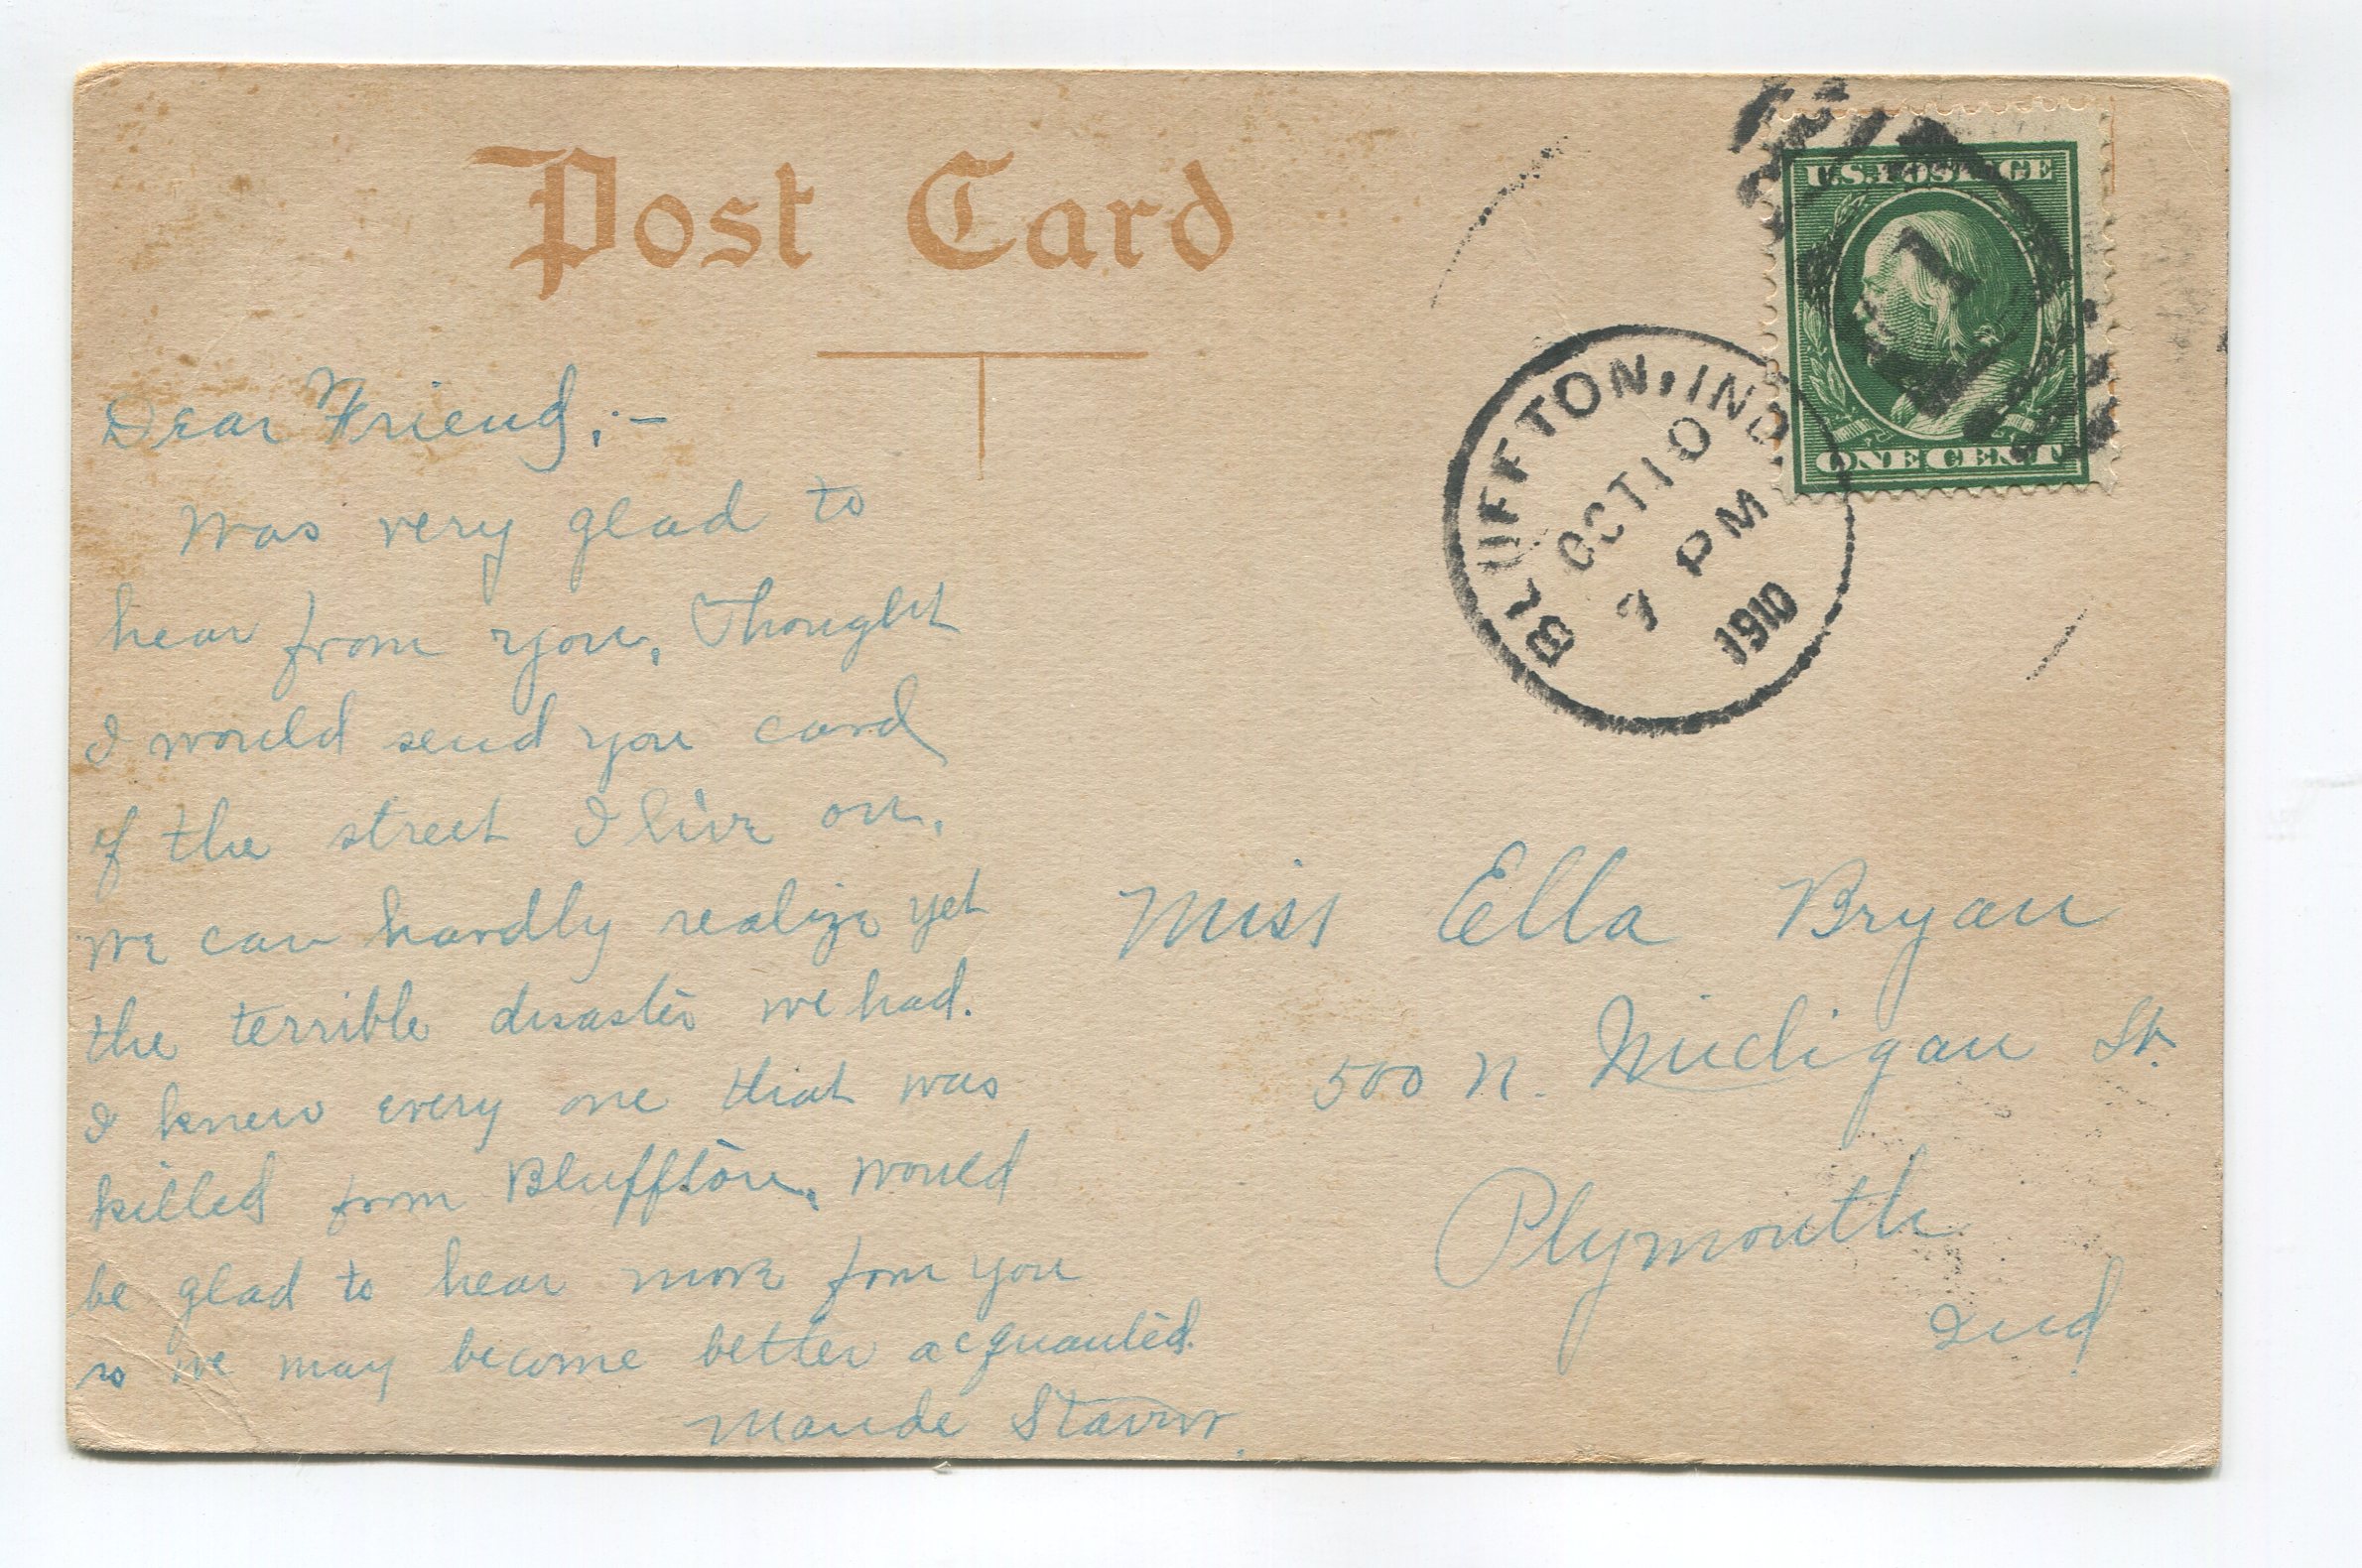 Post Card
U.S. POSTAGE
ONE CENT
BLUFFTON, IND
OCT 10
7 PM
1910
Dear Friend,:-
Was very glad to
hear from you, Thought
I would send you card
of the street I live on.
We can hardly realize yet
the terrible disaster we had.
I knew every one that was
killed from Bluffton, would
be glad to hear more from you
so we may become better acquanted.
Maude
Miss Ella Bryan
500 N. Michigan St.
Plymouth
Ind.